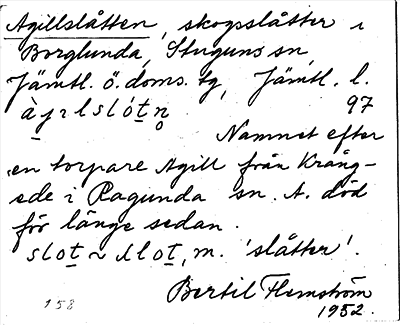 Agillslåtten, skogsslåtter i
Borglunda, Stuguns sn,
Jämtl. ö. doms. tg, Jämtl. l.
àɟɪlslót̲n̥ 97
Namnet efter
en torpare Agill från Kräng-
ede i Ragunda sn. A. död
för länge sedan.
slot̲ ~ ɬlot̲, m. 'slåtter'.
Bertil Flemström
158 1952.